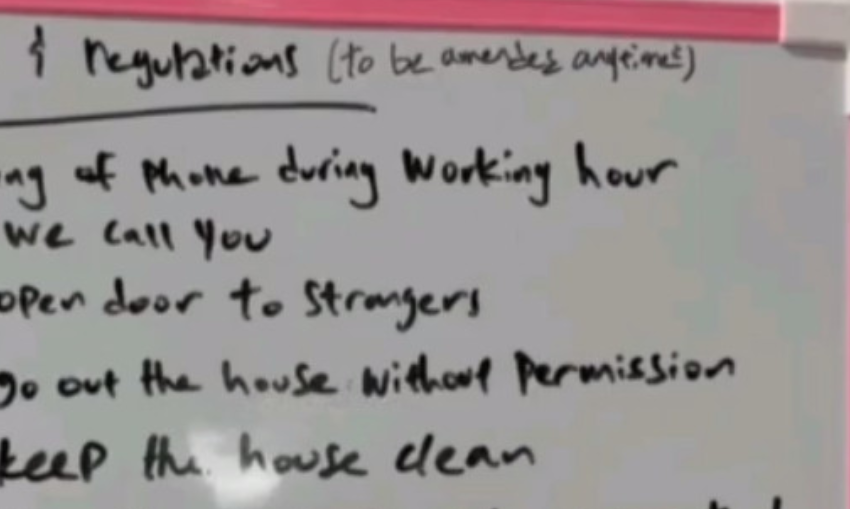 & regulations (to be amended anytimes)
ng of phone during working hour
we call you
open door to strangers
go out the house without permission
keep the house clean